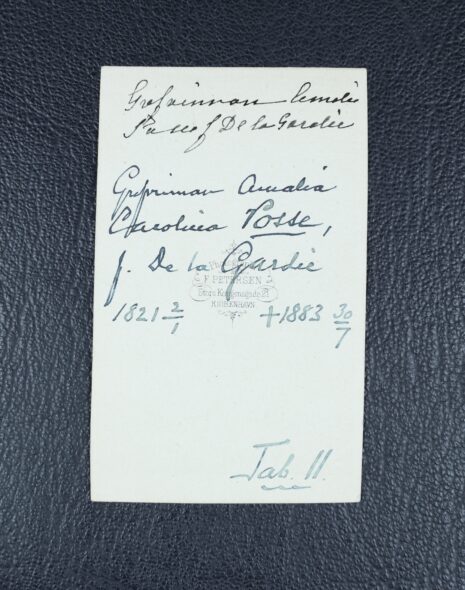 Grefvinnan Amalia
Posse f. De la Gardie
Grefvinnan Amalia
Carolina Posse,
f. De la Gardie
F. PETERSEN
Store Kongensgade 21
KJØBENHAVN
1821 2/1 +1883 30/7
Tab. 11.